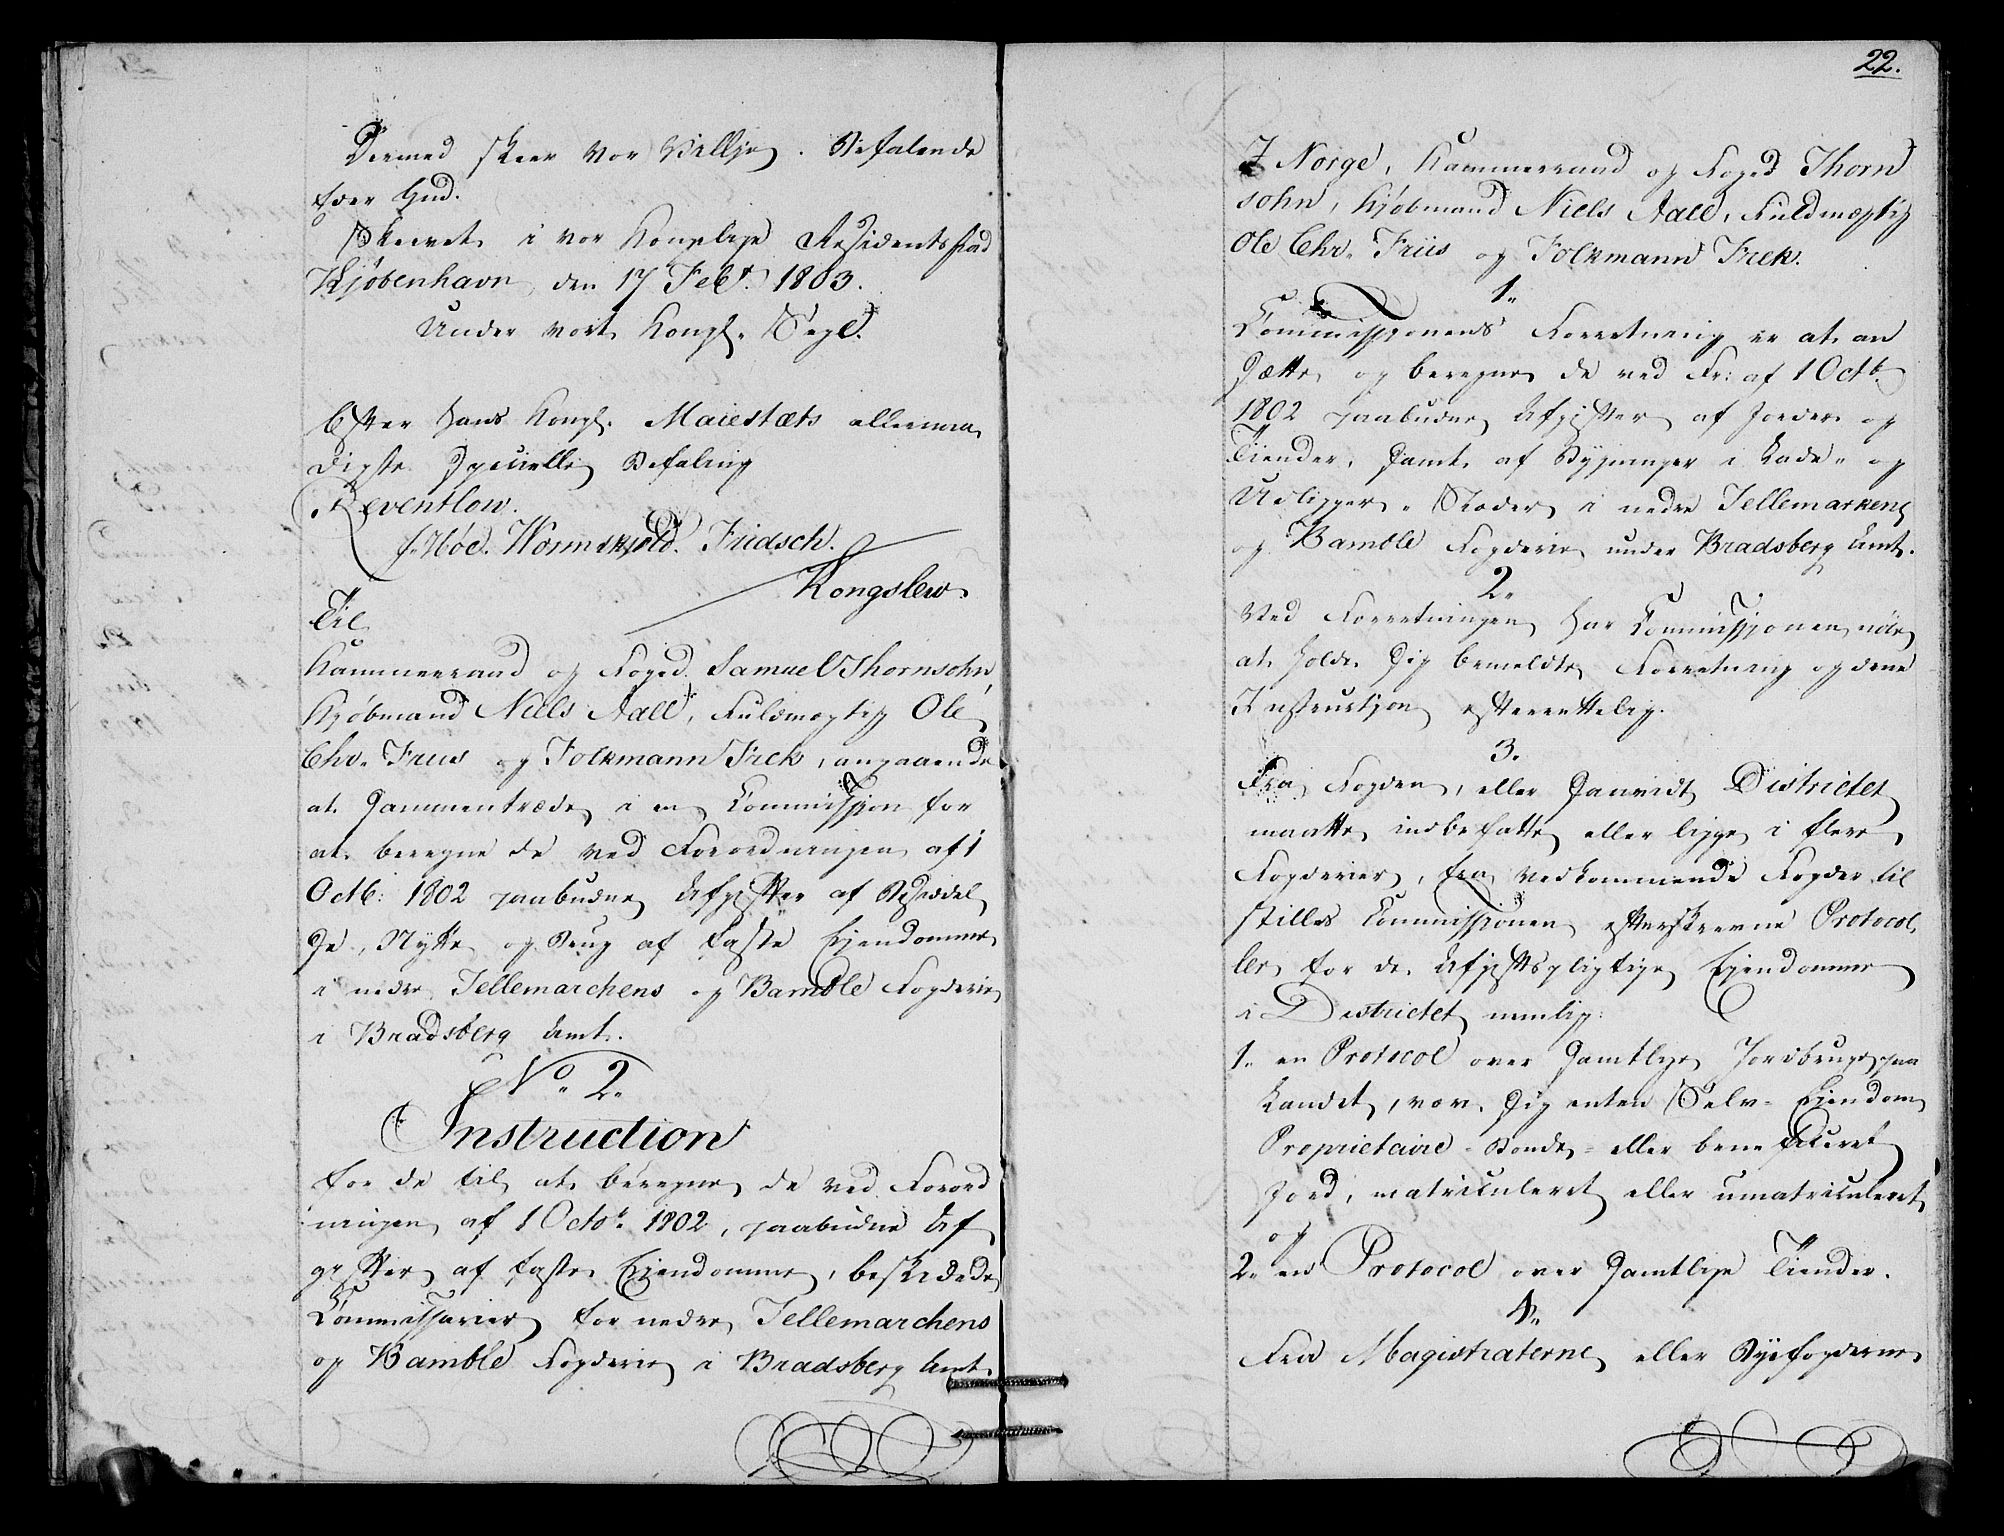 Dermed skeer Vor Villje. Befalende
Eder Gud.
Skrevet i vor Kongelige Residentsstad
Kjøbenhavn, den 17 Febr. 1803.
Under vort Kongl. Segl.
Efter Hans Kongl. Maiestæts allernaa
digste Specielle Befaling
Reventlow.
f. Höe. Wormskjold. Fridsch.
Kongslew.
Til
Kammerraad og Foged Samuel Thornsohn,
Kjøbmand Niels Aall, Fuldmægtig Ole
Chr. Friis og Folkmann Frek, angaaende
at sammentræde i en Commission for
at beregne de ved Forordningen af 1
Octb: 1802 paabudne Afgifter af Besiddel
se, Nytte og Brug af faste Ejendomme
i nedre Tellemarchens og Bamble Fogderie
i Bradsberg Amt.
No. 2.
Instruction
for de til at beregne de ved Forord
ningen af 1 Octbr. 1802, paabudne Af
gifter af faste Ejendomme, beskikkede
Commissarier for nedre Tellemarchens
og Bamble Fogderie i Bradsberg Amt
22.
I Norge, Kammerraad og Foged Thorn
sohn, Kjøbmand Niels Aall, Fuldmægtig
Ole Chr. Friis og Folkmann Frek.
1.
Commissionens Forretning er at an
sætte og beregne de ved Fr: af 1 Octb.
1802 paabudne Afgifter af Jorder og
Tiender, samt af Bygninger i Lade- og
Udligger-Stæder i nedre Tellemarkens
og Bamble Fogderie under Bradsberg Amt.
2.
Ved Forretningen har Commissionen nöie
at holde sig bemeldte Forretning og denne
Instruction efterrettelig.
3.
Fra Fogden, eller saavidt Districtet
maatte indbefatte eller ligge i flere
Fogderier, fra vedkommende Fogder til
stilles Commissionen efterskrevne Protocol,
ler for de Afgiftspligtige Ejendomme
i Districtet nemlig:
1. en Protocol over samtlige Jordbrug paa
Landet, være sig enten Selv-Eiendom
Proprietaire-Bonde- eller beneficeret
Jord, matriculeret eller umatriculeret
og
2. en Protocol over samtlige Tiender.
4.
Fra Magistraterne eller Byefogderne